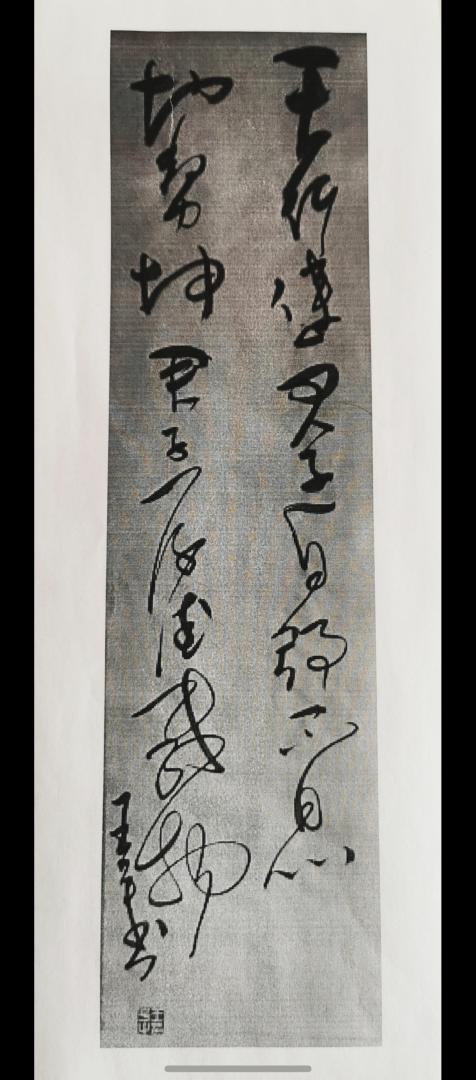 天行健君子自強不息
地勢坤君子厚德載物
王 书